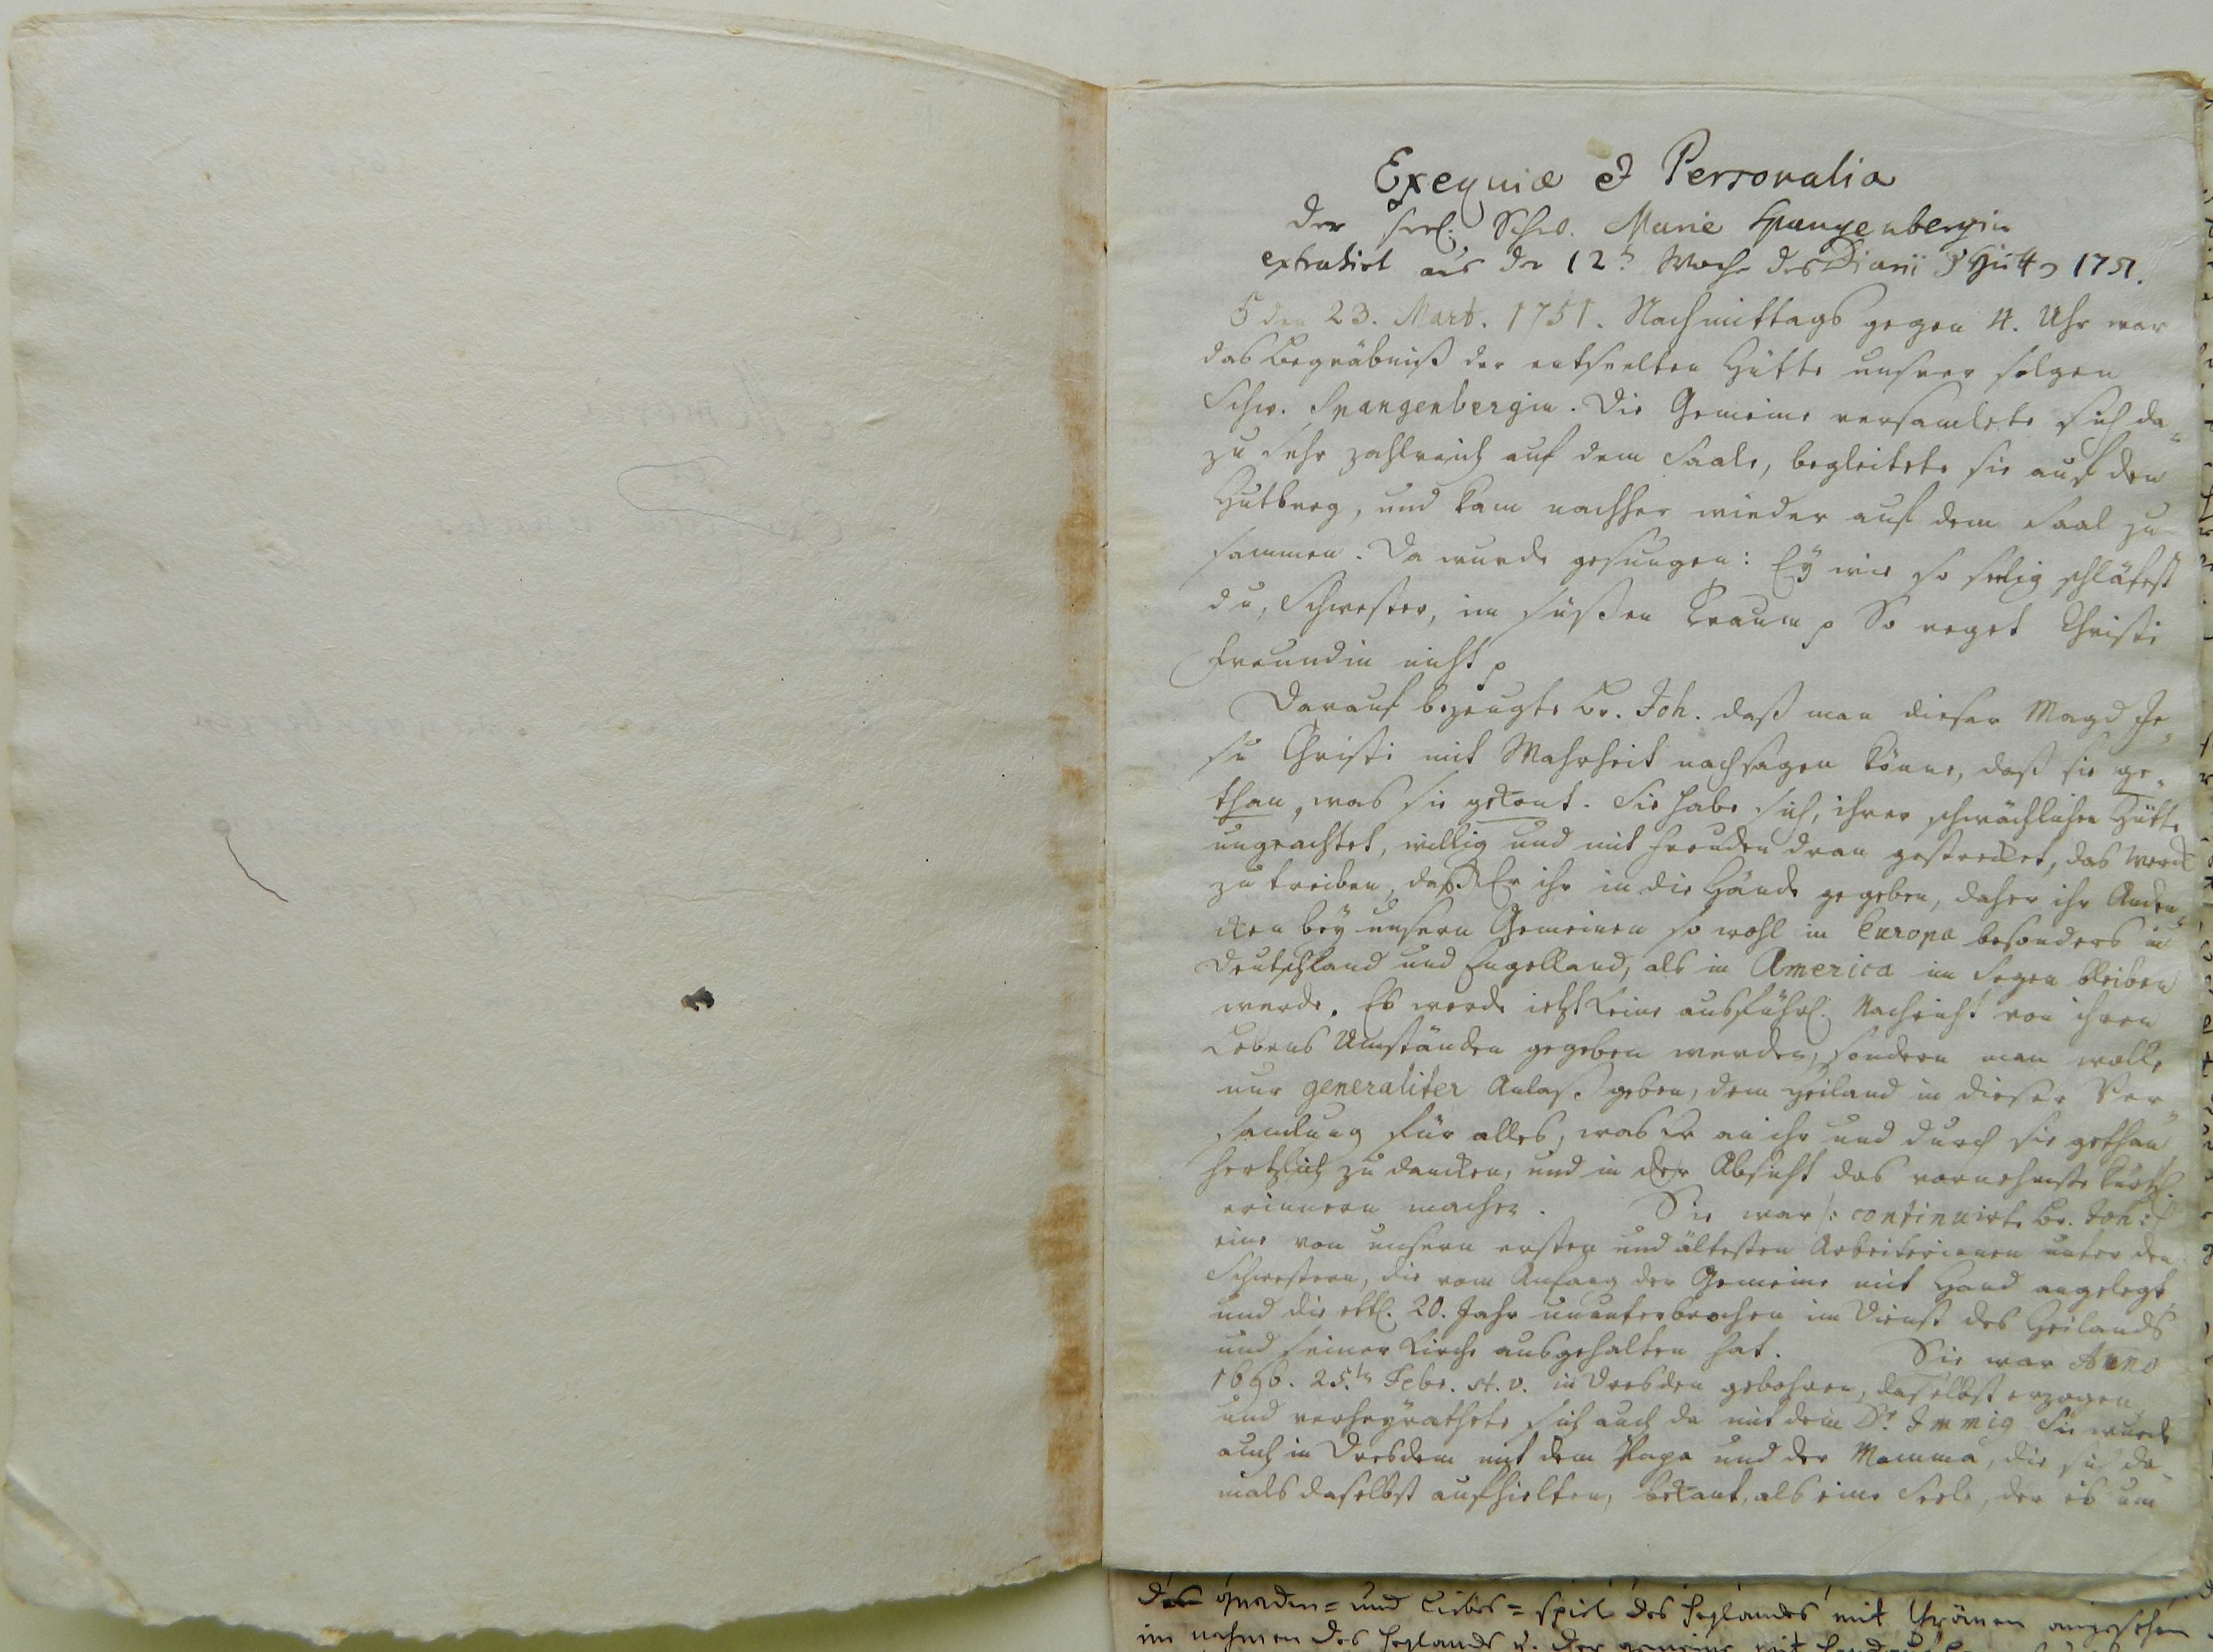 Exequiæ et Personalia
der seel. Schw. Marie Spangenbergin
extrahirt aus der 12t. Woche des Diarii d Hütt 1751.
♄ den 23. Mart. 1751. Nachmittags gegen 4. Uhr war
das Begräbniß der entseelten Hütte unsrer selgen
Schw. Spangenbergin. Die Gemeine versamlete sich da„
zu sehr zahlreich auf dem Saale, begleitete sie auf den
Hutberg, und kam nachher wieder auf dem Saal zu
sammen. Da wurde gesungen: Ey wie so seelig schläfest
du, Schwester, im süßen Traum p So reget Christi
Freundin nicht p
Darauf bezeugte Br. Joh. daß man dieser Magd Je„
su Christi mit Wahrheit nachsagen könne, daß sie ge„
than, was sie gekont. Sie habe sich, ihrer schwächlichen Hütte
ungeachtet, willig und mit Freuden dran gestrecket, das Werck
zu treiben, daß Er ihr in die Hände gegeben, daher ihr Anden„
cken bey unsern Gemeinen so wohl in Europa besonders in
Deutschland und Engelland, als in America im Segen bleiben
werde. Es werde ietzt keine ausführl. Nachricht von ihren
Lebens Umständen gegeben werden, sondern man wolle
nur generaliter Anlaß geben, dem Heiland in dieser Ver„
samlung für alles, was Er an ihr und durch sie gethan
hertzlich zu dancken, und in der Absicht das vornehmste kürtzl.
erinnern machen. Sie war /: continuirte Br. Joh :/
eine von unsern ersten und ältesten Arbeiterinnen unter den
Schwestern, die vom Anfang der Gemeine mit Hand angelegt,
und die ettl. 20. Jahr ununterbrochen im Dienst des Heilands
und seiner Kirche ausgehalten hat. Sie war Anno
1696. 25.ten Febr. st. v. in Dresden gebohren, daselbst erzogen,
und verheyrathete sich auch da mit dem Dr. Immig Sie wurde
auch in Dresden mit dem Papa und der Mamma, die sich da„
mals daselbst aufhielten, bekant, als eine Seele, der es um
des gnaden= und Liebes=spiel des heylandes mit thränen angesehen
im nahmen des heylands u. der gemeine mit